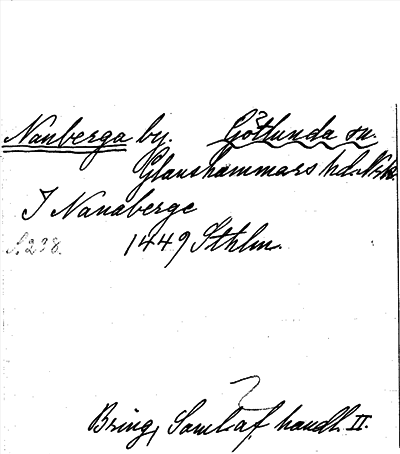 Nanberga by. Götlunda sn.
Glanshammars hd. Nke.
I Nanaberge
S. 238. 1449 Sthlm
Bring, Saml af handl. II.